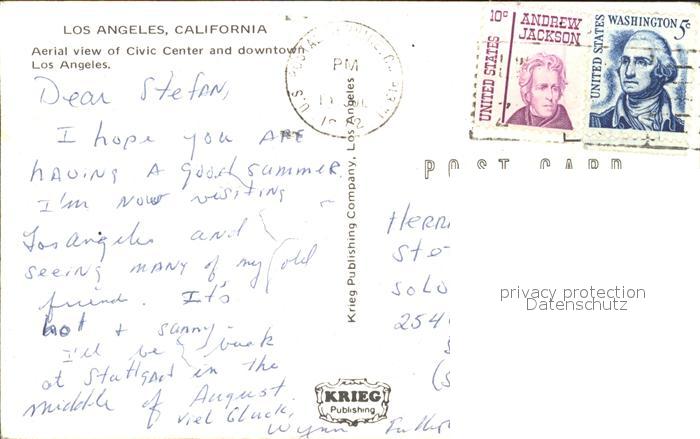 LOS ANGELES, CALIFORNIA
Aerial view of Civic Center and downtown
Los Angeles.
Dear Stefan,
I hope you are
having a good summer.
I'm now visiting
Los Angeles and
seeing many of my old
friend. It's
hot & sunny.
I'll be back
at Stuttgart in the
middle of August.
Viel Glück,
Wynn
Krieg Publishing Company, Los Angeles
KRIEG
Publishing
U.S. POSTAL
PM
10c ANDREW
JACKSON
UNITED STATES
WASHINGTON 5c
UNITED STATES
POST CARD
Herr
Ste
Solo
254
privacy protection
Datenschutz